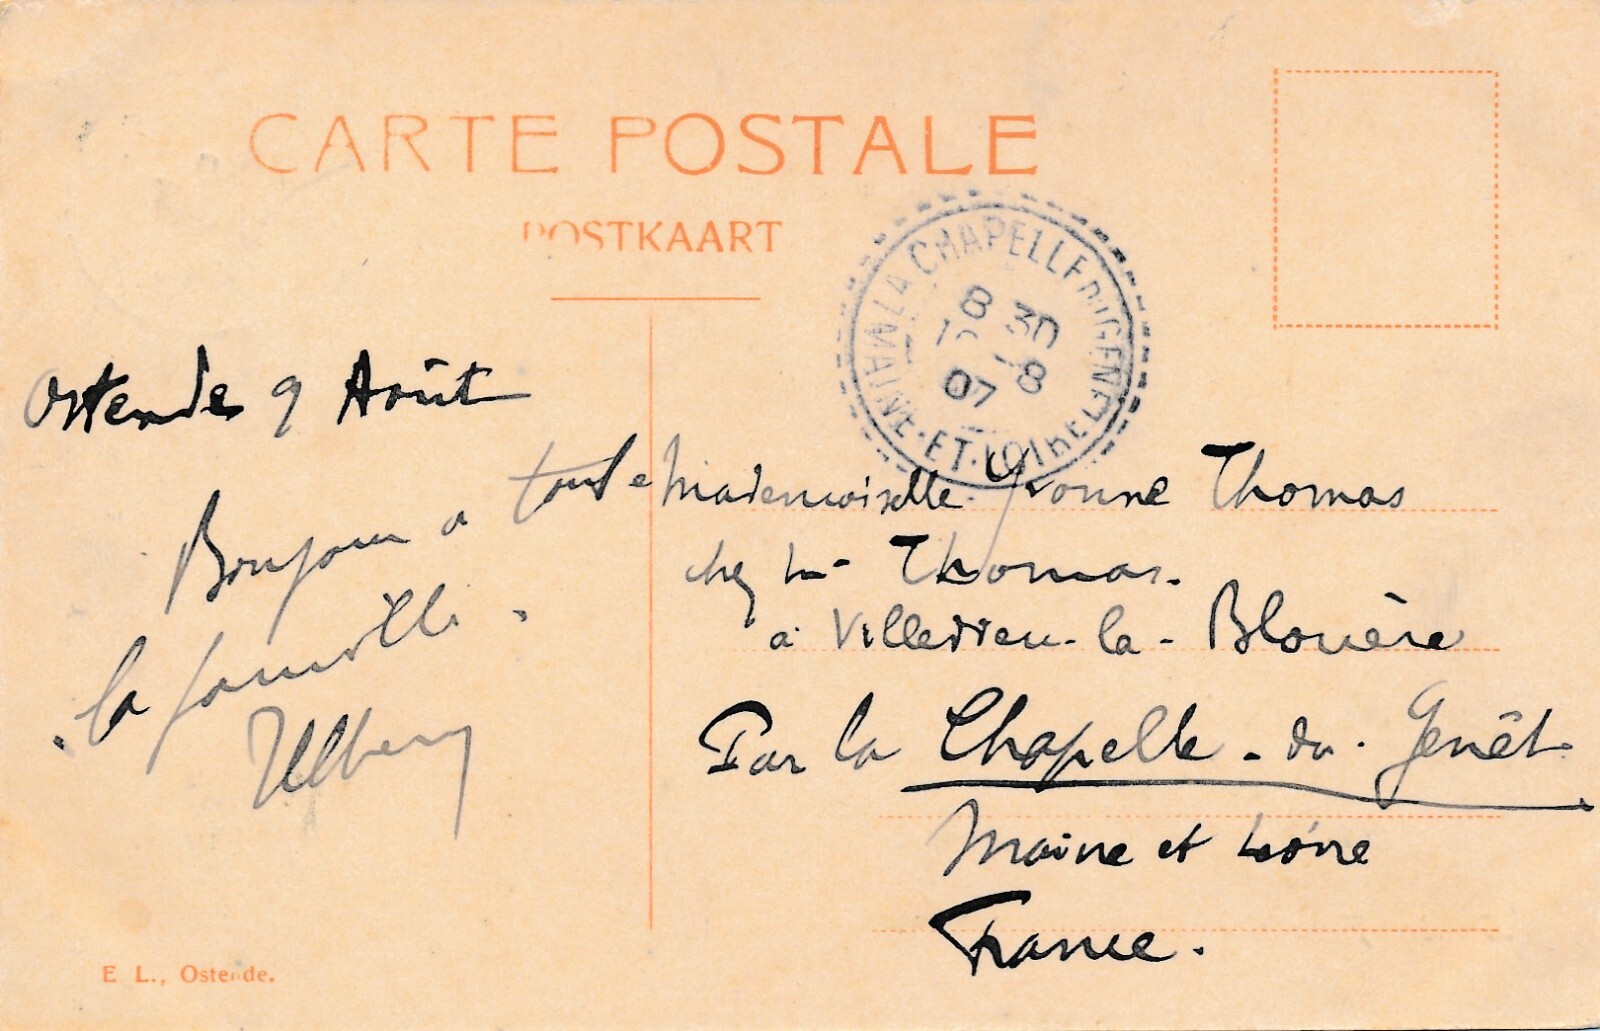 CARTE POSTALE
POSTKAART
LA CHAPELLE DU GENET
8 30
8
07
MAINE-ET-LOIRE
Ostende 9 Août
Bonjour a toute
la famille.
Mademoiselle Yvonne Thomas
chez Mr Thomas.
a Villedieu-la-Blouère
Par la Chapelle-du-Genêt
Maine et Loire
France.
E L., Ostende.